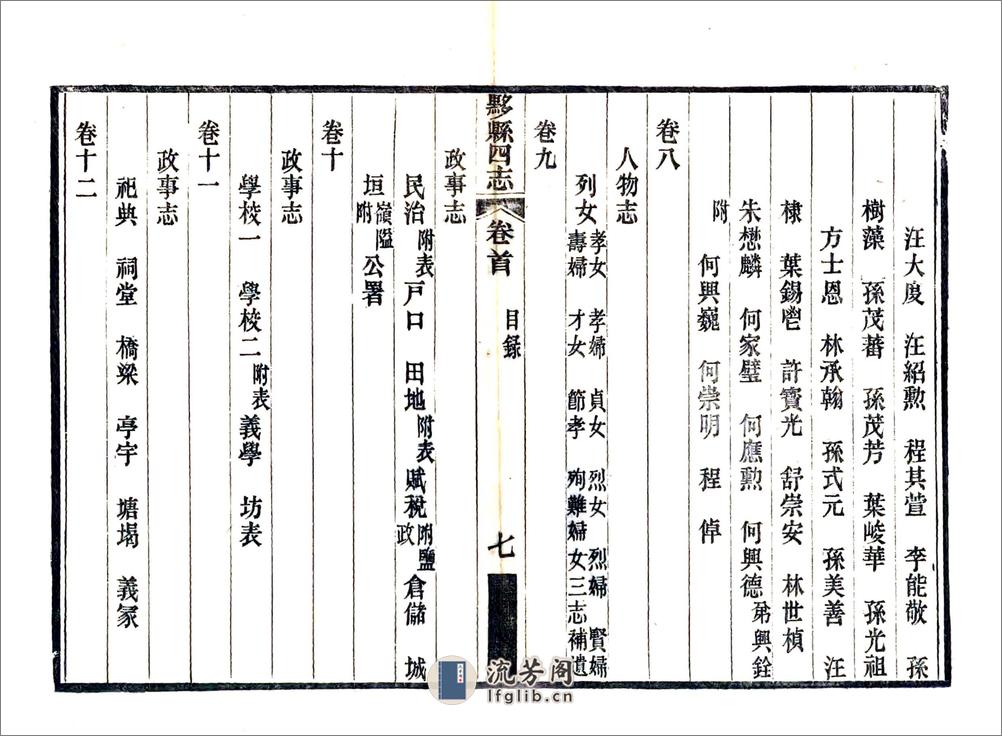 汪大度 汪紹勲 程其萱 李能敬 孫
樹藻 孫茂蕃 孫茂芳 葉峻華 孫光祖
方士恩 林承翰 孫式元 孫美善 汪
棣 葉錫鬯 許寶光 舒崇安 林世楨
朱懋麟 何家璧 何應勲 何興德 弟興銓
附 何興巍 何崇明 程 倬
卷八
人物志
列女 孝女 孝婦 貞女 烈女 烈婦 賢婦
壽婦 才女 節孝 殉難婦女三志補遺
卷九
黟縣四志 卷首 目録 七
政事志
民治附表 戸口 田地附表 賦稅附鹽政 倉儲 城
垣附嶺隘 公署
卷十
政事志
學校一 學校二附表 義學 坊表
卷十一
政事志
祀典 祠堂 橋梁 亭宇 塘堨 義冢
卷十二
流芳阁
lfglib.cn